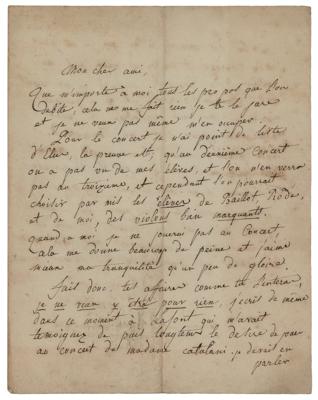 Mon cher ami,
Que m'importe à moi tout les propos que l'on
debite, cela ne me fait rien je te le jure
et je ne veux pas même m'en occuper
Pour le concert je n'ai point de liste
d'Elève, la preuve est; qu'au deuxième concert
on a pas vu de mes élèves, et l'on n'en verra
pas au troisième, et cependant l'on pourrait
choisir parmis les élèves de Baillot Rode,
et de moi, des violons bien marquants.
quand a moi je ne jouerai pas au Concert
cela me donne beaucoup de peine et j'aime
mieux ma tranquilité qu'un peu de gloire.
fait donc, tes affaires comme tu l'entens,
je ne veux y être pour rien, j'écris de même
dans ce moment à Lafont qui m'avait
temoigner depuis longtems le desire de jouer
au concert de madame catalani, je devais en
parler